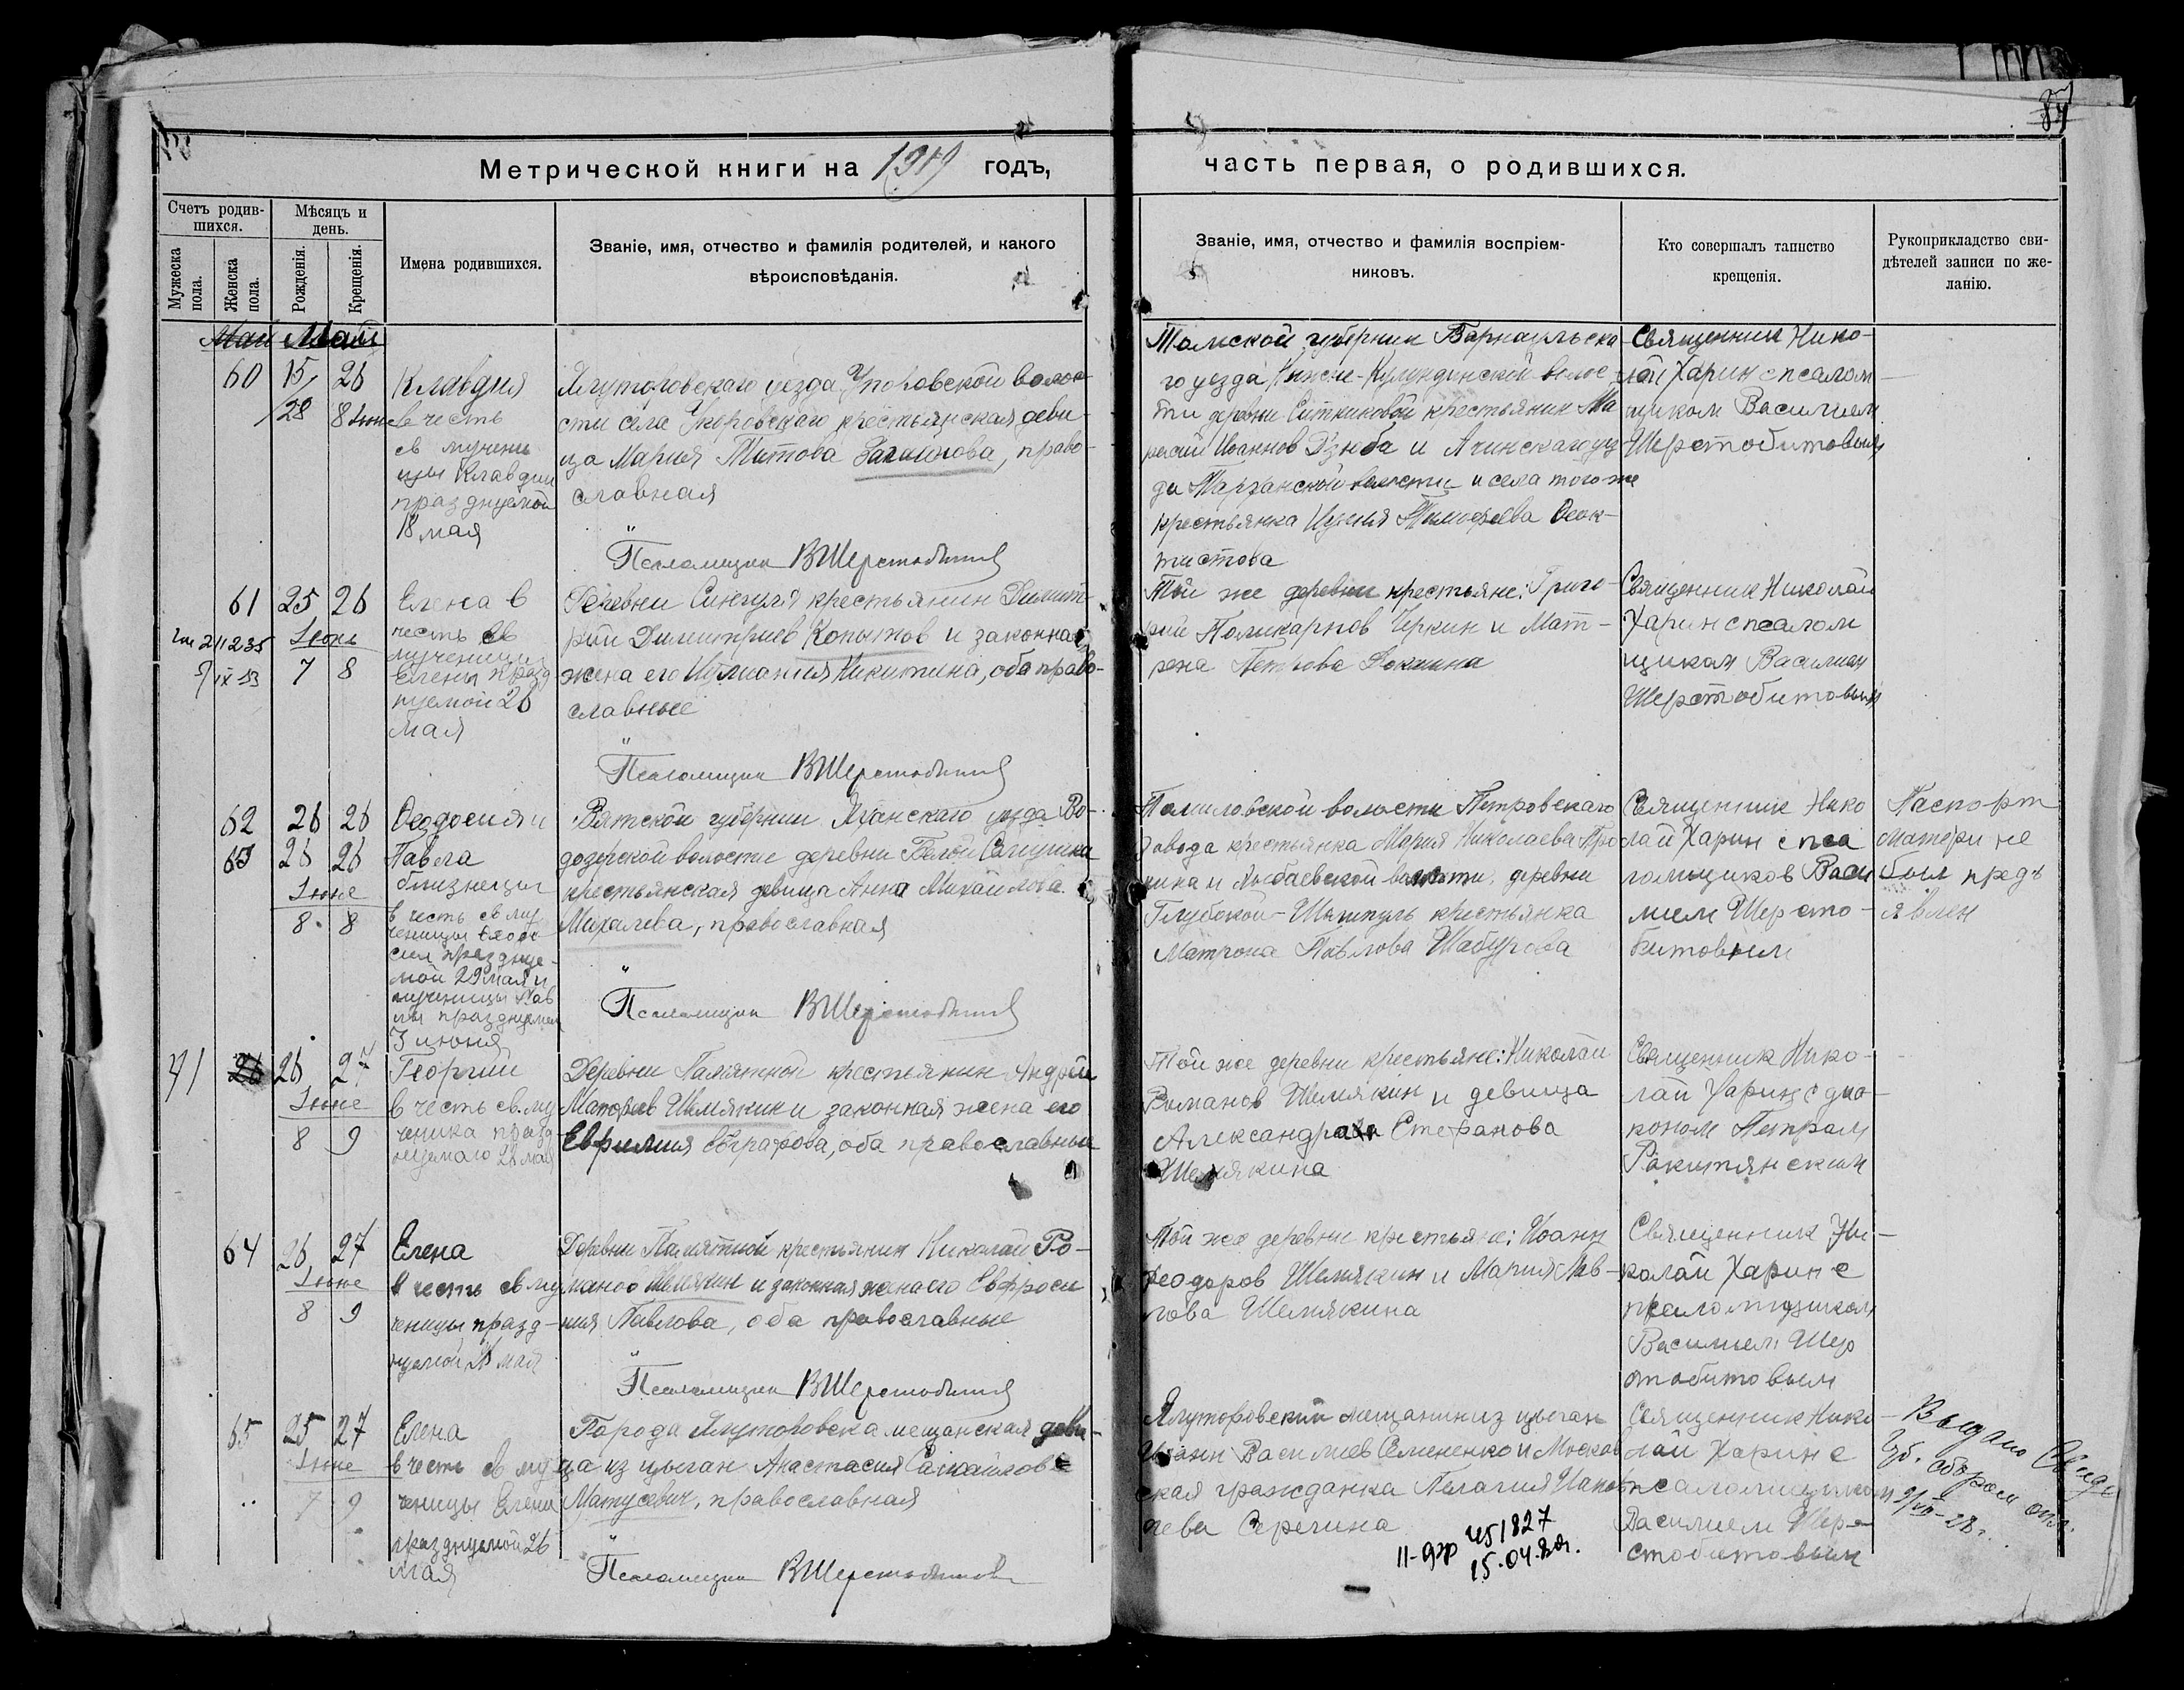 84
Метрической книги на 1919 годъ,
часть первая, о родившихся.
Счетъ родив-
шихся.
Мужеска
пола.
Женска
пола.
Мѣсяцъ и
день.
Рожденія.
Крещенія.
Имена родившихся.
Званіе, имя, отчество и фамилія родителей, и какого
вѣроисповѣданія.
Званіе, имя, отчество и фамилія воспріем-
никовъ.
Кто совершалъ таинство
крещенія.
Рукоприкладство сви-
дѣтелей записи по же-
ланію.
Май Май
60 15 26
28 8 Июне
Клавдия
в честь
св мучени
цы Клавдии
празднуемой
18 мая
Ялуторовскаго уезда Упоровской волос
сти села Упоровскаго крестьянская деви
ца Мария Титова, право-
славная
Псаломщик ВШерстобитов
Томской губернии Барнаульска
го уезда Нижне-Кулундинской волос
ти деревни Ситниковой крестьянин Ма
Иоаннов Дзюба и Ачинскаго уез
да волости и села того же
крестьянка Тимофеева Феок-
тистова
Священник Нико-
лай Харин с псалом
щиком Василием
Шерстобитовым
61 25 26
Июнь
7 8
211235
9/IX 53
Елена в
честь св
мученицы
Елены празд
нуемой 26
мая
Деревни Сингуль крестьянин Димит-
рий Димитриев Копытов и законная
жена его Иулиания Никитина, оба право-
славные
Псаломщик ВШерстобитов
Той же деревни крестьяне: Григо-
рий Поликарпов Черкин и Мат-
рена Петрова
Священник Николай
Харин с псалом
щиком Василием
Шерстобитовым
62 26 26
63 26 26
Июне
8 8
Феодосия и
Павла
близнецы
в честь св му
ченицы Феодо
сии празднуе-
мой 29 мая и
мученицы Пав
лы празднуемой
3 июня
Вятской губернии Яранскаго уезда Во-
дозерской волости деревни Белой
крестьянская девица Анна Михайлова
Михалева, православная
Псаломщик ВШерстобитов
Томиловской волости Петровскаго
завода крестьянка Мария Николаева Про
нина и волости деревни
Глубокой- крестьянка
Матрона Павлова Шабурова
Священник Нико
лай Харин с пса
ломщиков Васи
лием Шерсто-
битовым
Паспорт
матери не
был предъ
явлен
71 26 27
Июне
8 9
Георгий
в честь св. му
ченика празд
нуемаго 26 мая
Деревни Памятной крестьянин Андрей
Матфиев Шемякин и законная жена его
Евфимия Евграфова, оба православные
Той же деревни крестьяне: Николай
Романов Шемякин и девица
Александра Стефанова
Шемякина
Священник Нико-
лай Харин с диа-
коном Петром
Ракитянским
64 26 27
Июне
8 9
Елена
в честь св му
ченицы празд-
нуемой 26 мая
Деревни Памятной крестьянин Николай Ро-
манов Шемякин и законная жена его Евфроси
ния Павлова, оба православные
Псаломщик ВШерстобитов
Той же деревни крестьяне: Иоанн
Феодоров Шемякин и Мария Пав-
лова Шемякина
Священник Ни-
колай Харин с
псаломщиком
Василием Шер
стобитовым
65 25 27
Июне
7 9
Елена
в честь св му
ченицы Елены
празднуемой 26
мая
Города Ялуторовска мещанская деви-
ца из цыган Анастасия
Матусевич, православная
Псаломщик ВШерстобитов
Ялуторовский мещанин из цыган
Иоанн Василиев Семененко и Москов
ская гражданка Пелагия
Серегина
II-фр 451827
15.04.80г.
Священник Нико
лай Харин с
псаломщиком
Василием Шер-
стобитовым
Выдано Свиде